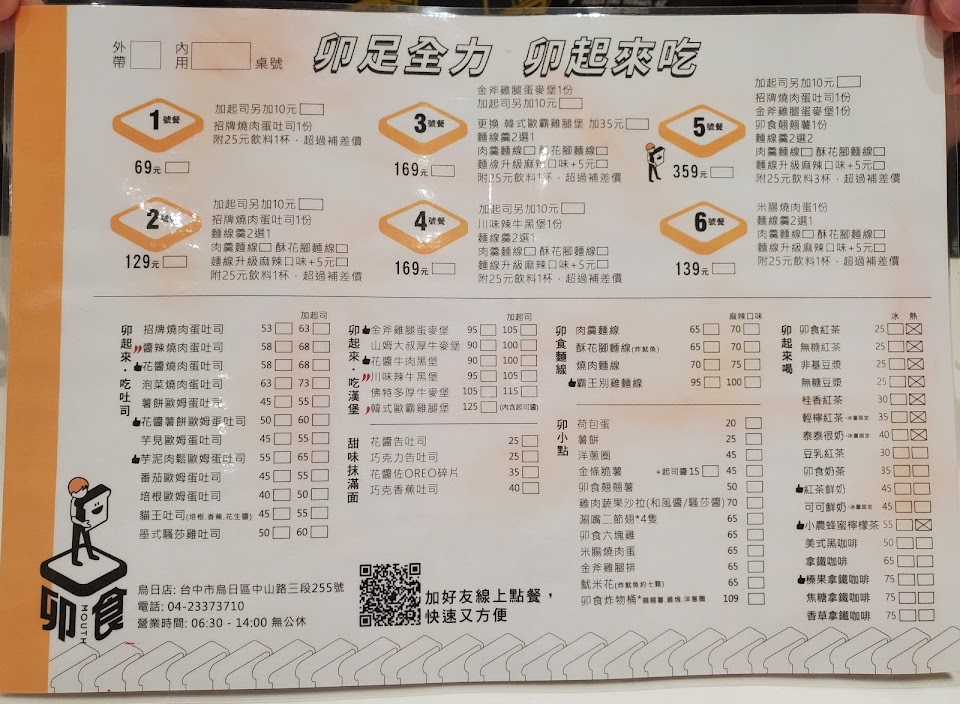 外帶 內用 桌號
卯足全力 卯起來吃
1號餐
69元
加起司另加10元
招牌燒肉蛋吐司1份
附25元飲料1杯，超過補差價
2號餐
129元
加起司另加10元
招牌燒肉蛋吐司1份
麵線羹2選1
肉羹麵線 酥花腳麵線
麵線升級麻辣口味+5元
附25元飲料1杯，超過補差價
3號餐
169元
金斧雞腿蛋麥堡1份
加起司另加10元
更換 韓式歐霸雞腿堡 加35元
麵線羹2選1
肉羹麵線 酥花腳麵線
麵線升級麻辣口味+5元
附25元飲料1杯，超過補差價
4號餐
169元
加起司另加10元
川味辣牛黑堡1份
麵線羹2選1
肉羹麵線 酥花腳麵線
麵線升級麻辣口味+5元
附25元飲料1杯，超過補差價
5號餐
359元
加起司另加10元
招牌燒肉蛋吐司1份
金斧雞腿蛋麥堡1份
卯食翹翹薯1份
麵線羹2選2
肉羹麵線 酥花腳麵線
麵線升級麻辣口味+5元
附25元飲料3杯，超過補差價
6號餐
139元
米腸燒肉蛋1份
麵線羹2選1
肉羹麵線 酥花腳麵線
麵線升級麻辣口味+5元
附25元飲料1杯，超過補差價
卯起來・吃吐司
加起司
招牌燒肉蛋吐司 53 63
醬辣燒肉蛋吐司 58 68
花醬燒肉蛋吐司 58 68
泡菜燒肉蛋吐司 63 73
薯餅歐姆蛋吐司 45 55
花醬薯餅歐姆蛋吐司 50 60
芋見歐姆蛋吐司 45 55
芋泥肉鬆歐姆蛋吐司 55 65
番茄歐姆蛋吐司 45 55
培根歐姆蛋吐司 40 50
貓王吐司(培根.香蕉.花生醬) 45 55
墨式騷莎雞吐司 50 60
卯起來・吃漢堡
加起司
金斧雞腿蛋麥堡 95 105
山姆大叔厚牛麥堡 90 100
花醬牛肉黑堡 90 100
川味辣牛黑堡 95 105
佛特多厚牛麥堡 105 115
韓式歐霸雞腿堡 125 (內含起司醬)
甜味抹滿面
花醬告吐司 25
巧克力告吐司 25
花醬佐OREO碎片 35
巧克香蕉吐司 40
卯食麵線
麻辣口味
肉羹麵線 65 70
酥花腳麵線(炸魷魚) 65 70
燒肉麵線 70 75
霸王別雞麵線 95 100
卯小點
荷包蛋 20
薯餅 25
洋蔥圈 45
金條脆薯 +起司醬15 45
卯食翹翹薯 50
雞肉蔬果沙拉(和風醬/騷莎醬) 70
涮嘴二節翅*4隻 65
卯食六塊雞 65
米腸燒肉蛋 65
金斧雞腿排 65
魷米花(炸魷魚約七顆) 65
卯食炸物桶*翹翹薯.雞塊.洋蔥圈 109
卯起來喝
冰 熱
卯食紅茶 25
無糖紅茶 25
非基豆漿 25
無糖豆漿 25
桂香紅茶 30
輕檸紅茶・冰量固定 35
泰泰很奶・冰量固定 40
豆乳紅茶 30
卯食奶茶 35
紅茶鮮奶 45
可可鮮奶・冰量固定 45
小農蜂蜜檸檬茶 55
美式黑咖啡 50
拿鐵咖啡 65
榛果拿鐵咖啡 75
焦糖拿鐵咖啡 75
香草拿鐵咖啡 75
卯食
MOUTH
烏日店: 台中市烏日區中山路三段255號
電話: 04-23373710
營業時間: 06:30 - 14:00 無公休
加好友線上點餐，
快速又方便